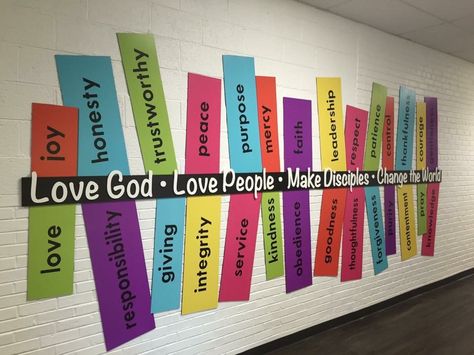 joy
honesty
trustworthy
peace
purpose
mercy
faith
leadership
respect
patience
control
thankfulness
courage
Love God • Love People • Make Disciples • Change the World
love
responsibility
giving
integrity
service
kindness
obedience
goodness
thoughtfulness
forgiveness
purity
contentment
pray
knowledge